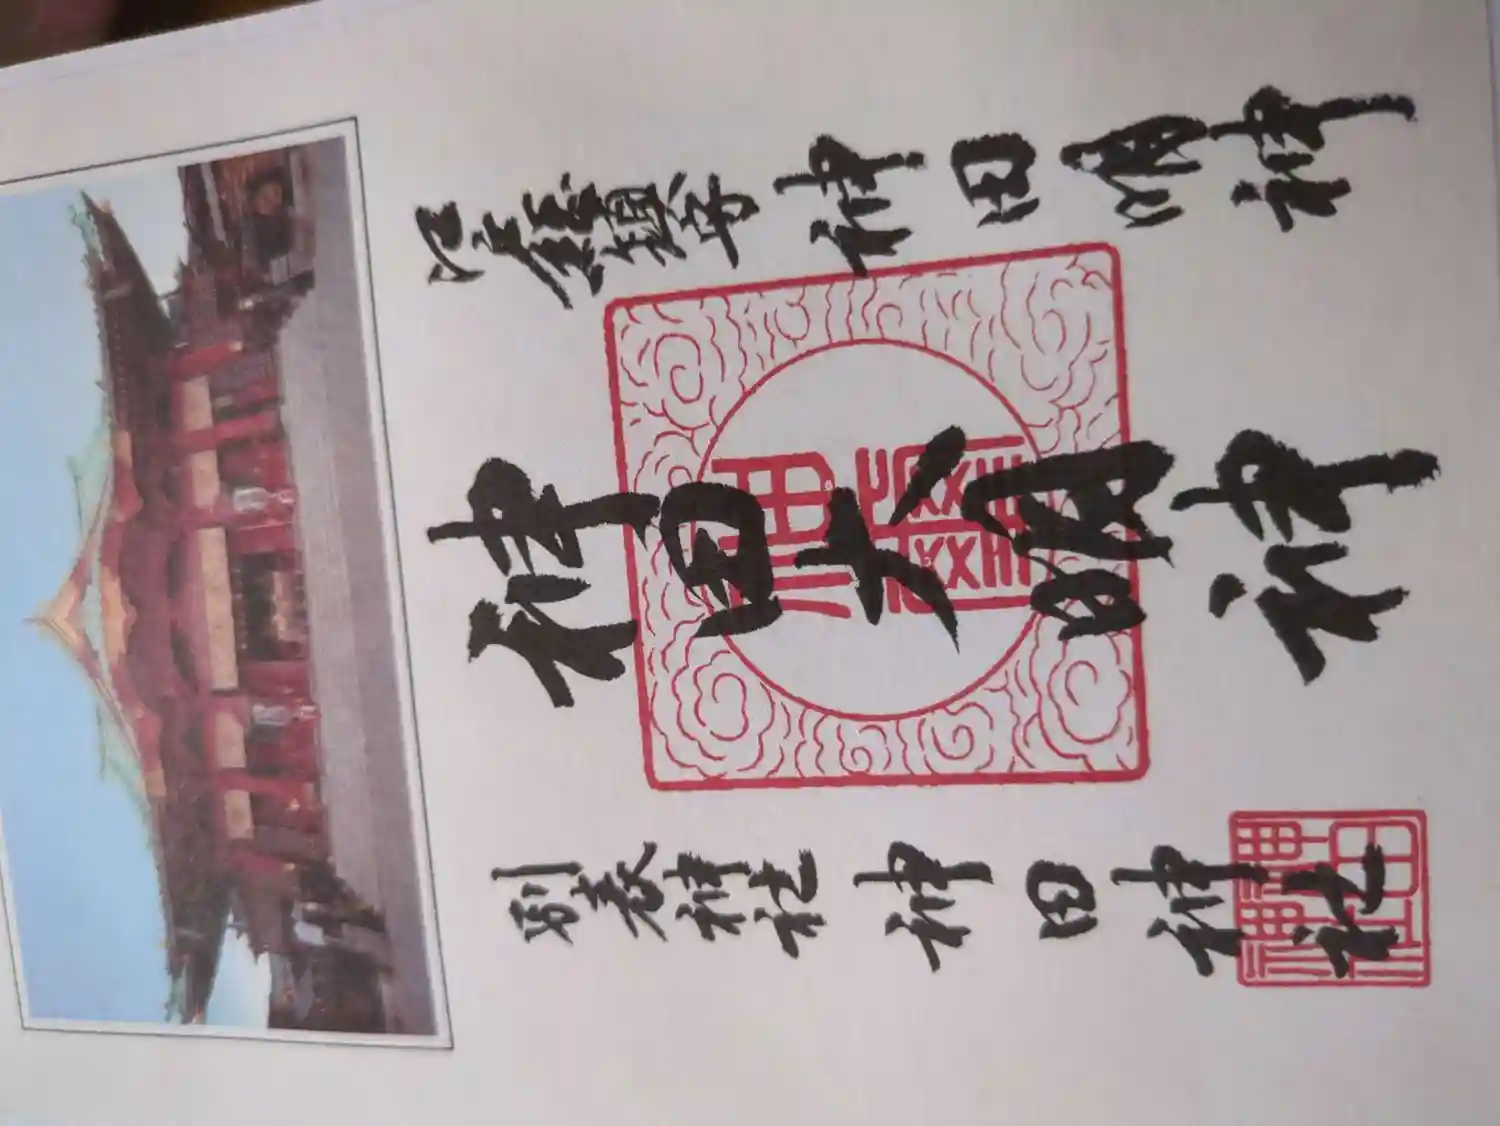 江戸総鎮守 神田明神
神田大明神
別表神社 神田神社
神田神社